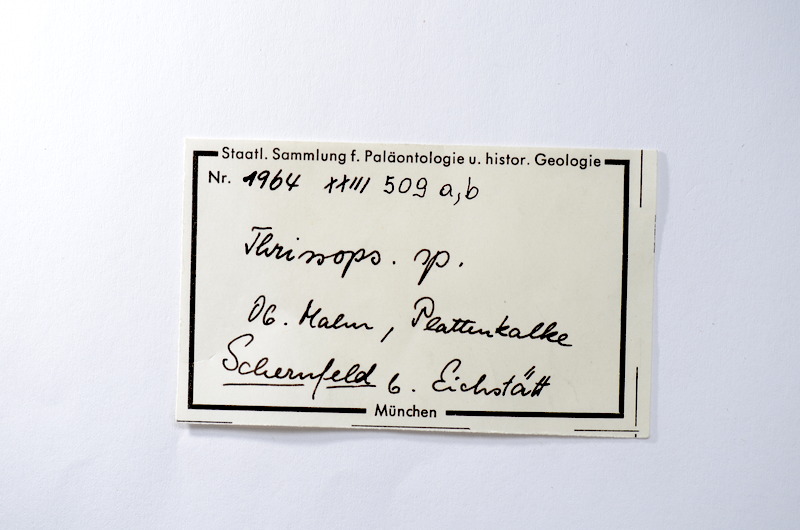 Staatl. Sammlung f. Paläontologie u. histor. Geologie
Nr. 1964 XXIII 509 a,b
Thrissops. sp.
Ob. Malm, Plattenkalke
Schernfeld b. Eichstätt
München